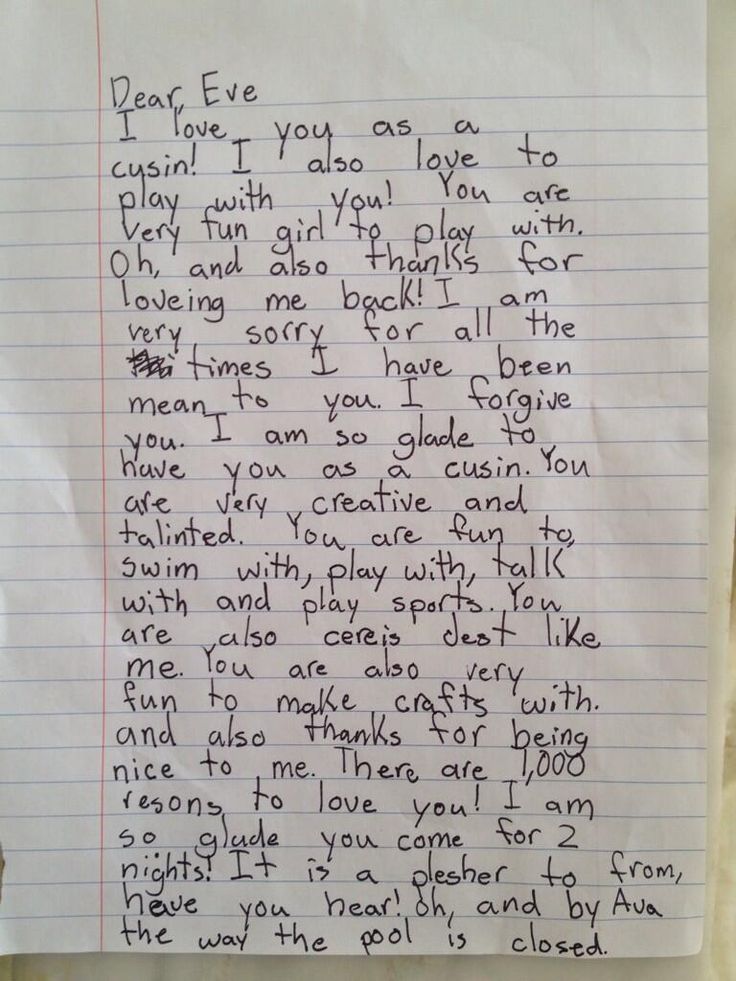 Dear, Eve
I love you as a
cusin! I also love to
play with you! You are
very fun girl to play with.
Oh, and also thanks for
loveing me back! I am
very sorry for all the
times I have been
mean to you. I forgive
you. I am so glade to
have you as a cusin. You
are very creative and
talinted. You are fun to
swim with, play with, talk
with and play sports. You
are also cereis dest like
me. You are also very
fun to make crafts with.
and also thanks for being
nice to me. There are 1,000
resons to love you! I am
so glade you come for 2
nights! It is a plesher to from,
have you hear! Oh, and by Ava
the way the pool is closed.